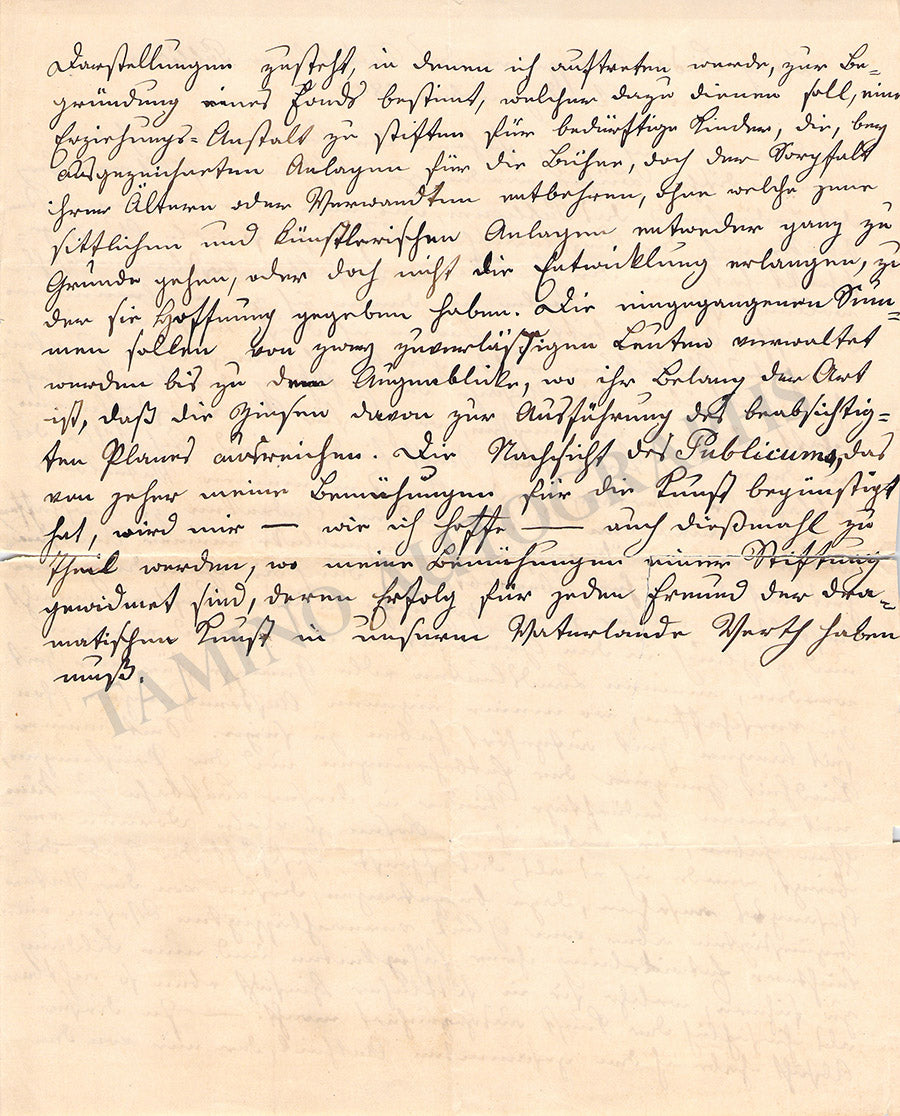 Darstellungen zusteht, in denen ich auftreten werde, zur Be=
gründung eines Fonds bestimt, welcher dazu dienen soll, eine
Erziehungs=Anstalt zu stiften für bedürftige Kinder, die, bey
ausgezeichneten Anlagen für die Bühne, doch der Sorgfalt
ihrer Ältern oder Verwandten entbehren, ohne welche jene
sittlichen und künstlerischen Anlagen entweder ganz zu
Grunde gehen, oder doch nicht die Entwicklung erlangen, zu
der sie Hoffnung gegeben haben. Die eingegangenen Sum=
men sollen von zwey zuverlässigen Leuten verwaltet
werden bis zu dem Augenblicke, wo ihr Belang der Art
ist, daß die Zinsen davon zur Ausführung des beabsichtig=
ten Planes ausreichen. Die Nachsicht des Publicums, das
von jeher meine Bemühungen für die Kunst begünstigt
hat, wird mir — wie ich hoffe — auch dießmahl zu
Theil werden, wo meine Bemühungen einer Stiftung
gewidmet sind, deren Erfolg für jeden Freund der dra=
matischen Kunst in unserem Vaterlande Werth haben
muß.
TAMINO AUTOGRAPHS